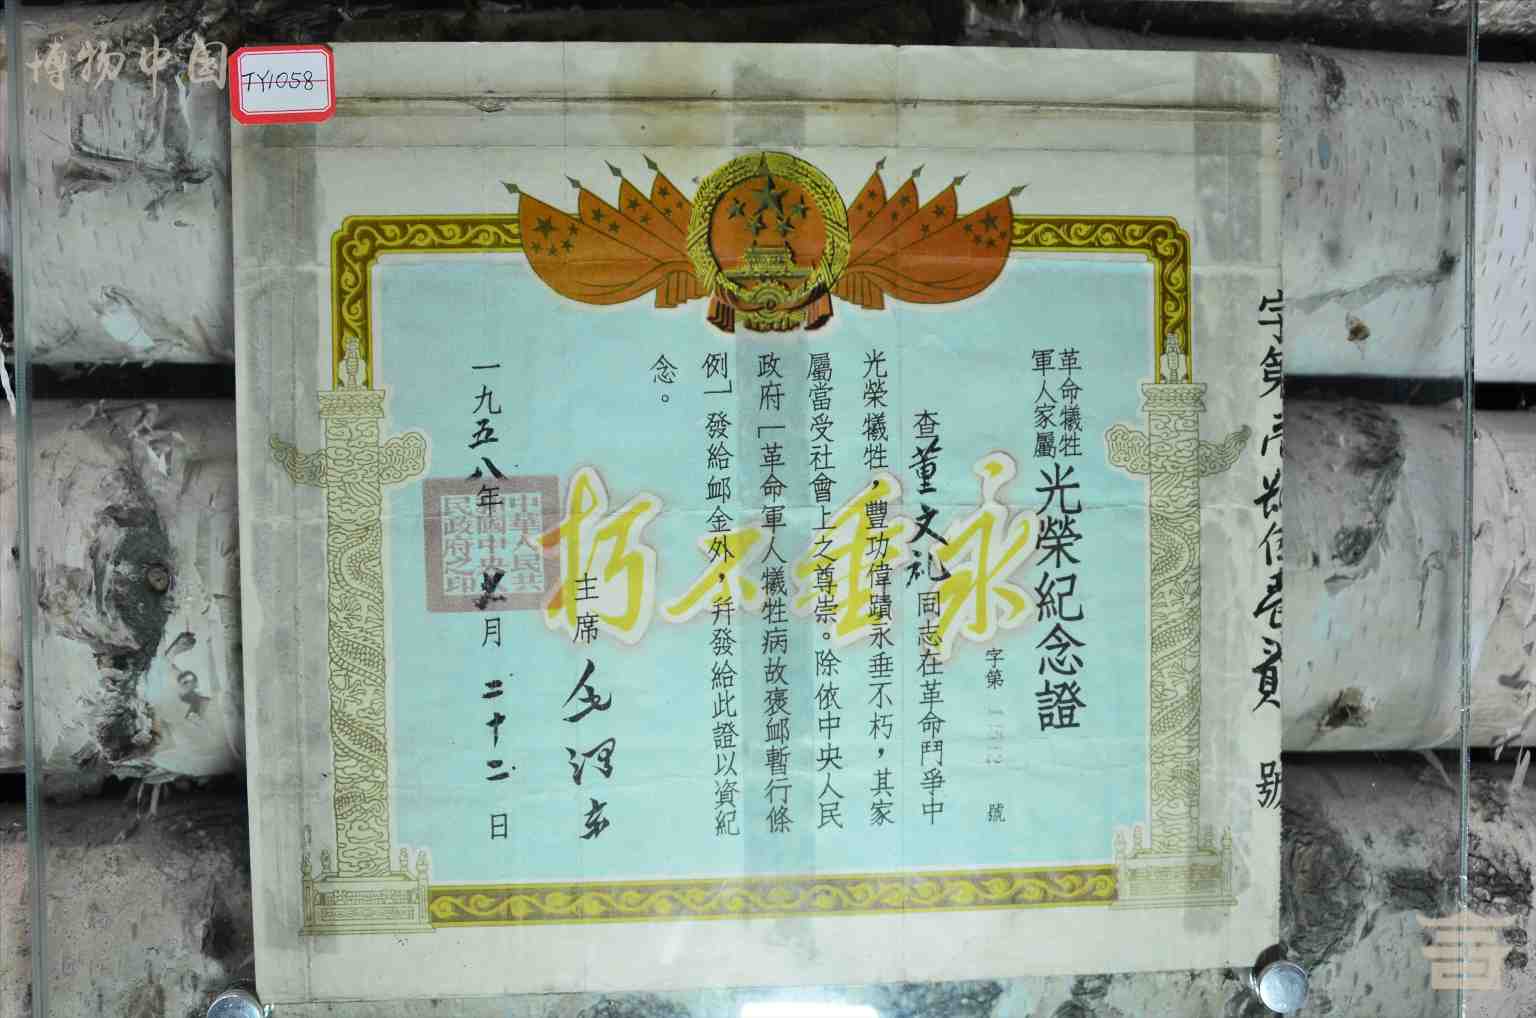 博物中国
TY1058
革命犧牲
軍人家屬
光榮紀念證
字第
號
查董文礼同志在革命鬥爭中
光榮犧牲，豐功偉蹟永垂不朽，其家
屬當受社會上之尊崇。除依中央人民
政府「革命軍人犧牲病故褒卹暫行條
例」發給卹金外，幷發給此證以資紀
念。
主席 毛澤東
一九五八年 月二十二日
永垂不朽
中華人民共
和國中央人
民政府之印
字第
號